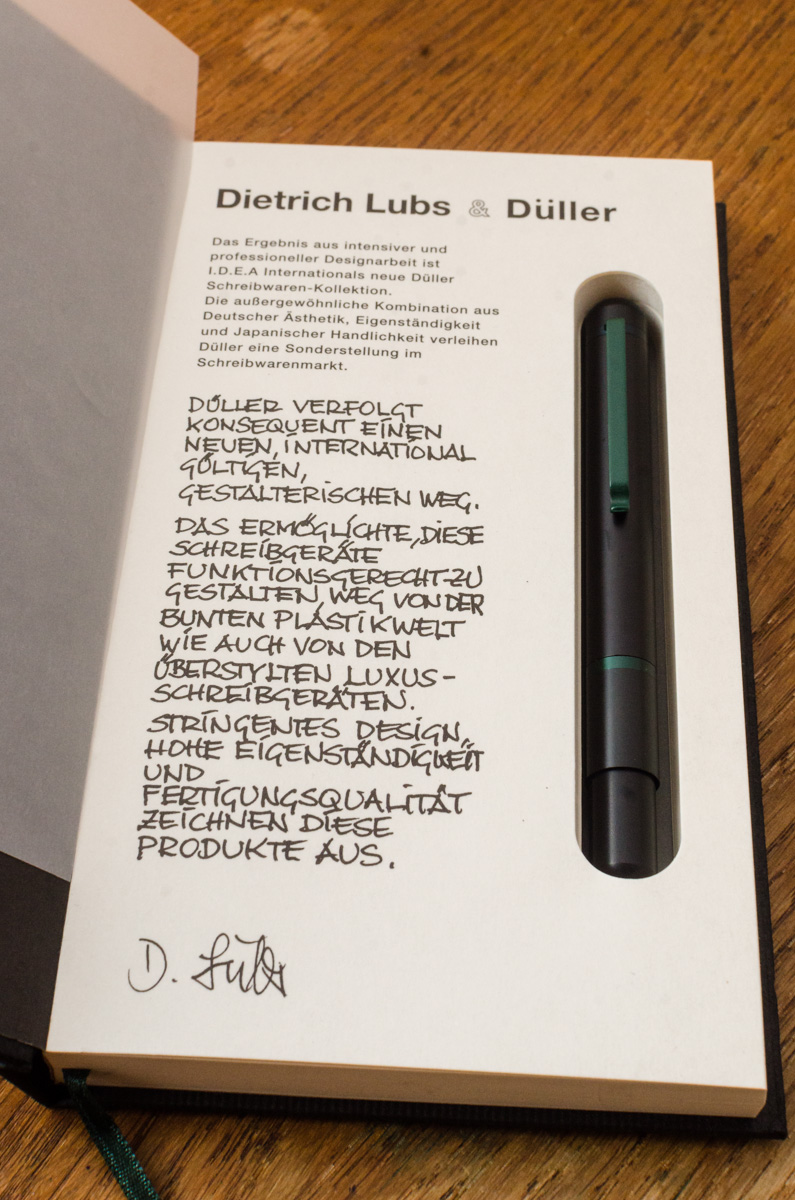 Dietrich Lubs & Düller
Das Ergebnis aus intensiver und
professioneller Designarbeit ist
I.D.E.A Internationals neue Düller
Schreibwaren-Kollektion.
Die außergewöhnliche Kombination aus
Deutscher Ästhetik, Eigenständigkeit
und Japanischer Handlichkeit verleihen
Düller eine Sonderstellung im
Schreibwarenmarkt.
DÜLLER VERFOLGT
KONSEQUENT EINEN
NEUEN, INTERNATIONAL
GÜLTIGEN,
GESTALTERISCHEN WEG.
DAS ERMÖGLICHTE, DIESE
SCHREIBGERÄTE
FUNKTIONSGERECHT ZU
GESTALTEN, WEG VON DER
BUNTEN PLASTIKWELT
WIE AUCH VON DEN
ÜBERSTYLTEN LUXUS-
SCHREIBGERÄTEN.
STRINGENTES DESIGN,
HOHE EIGENSTÄNDIGKEIT
UND
FERTIGUNGSQUALITÄT
ZEICHNEN DIESE
PRODUKTE AUS.
D. Lubs